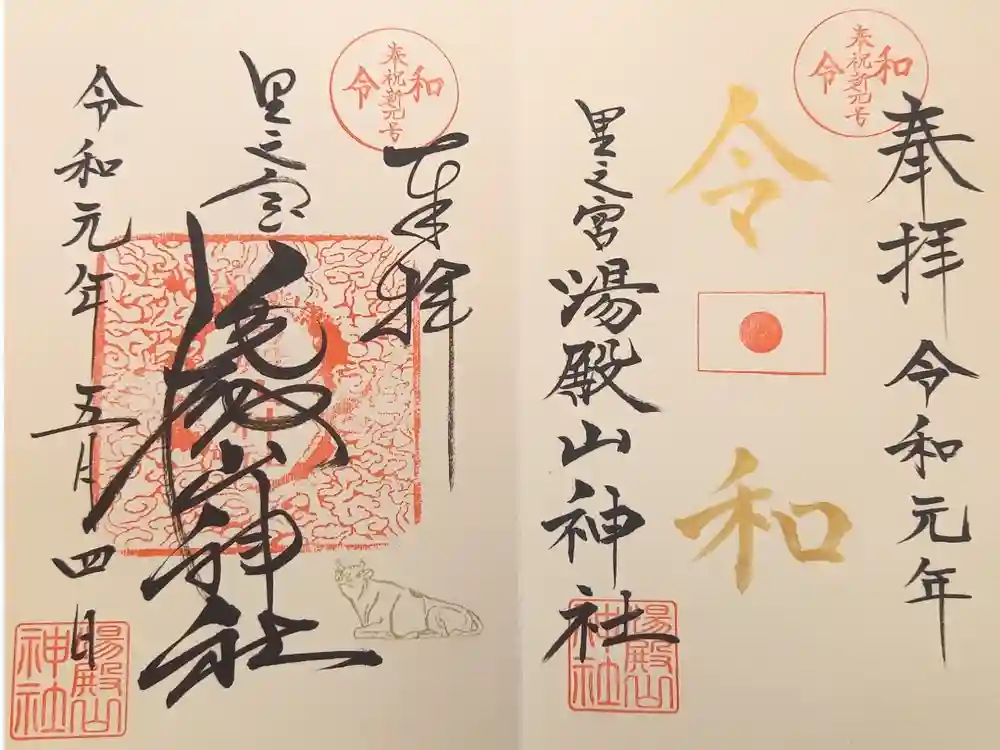 奉拝
令和元年
奉祝新元号
令和
令和
里之宮
湯殿山神社
湯殿山神社
奉拝
奉祝新元号
令和
里之宮
湯殿山神社
令和元年
五月四日
湯殿山神社